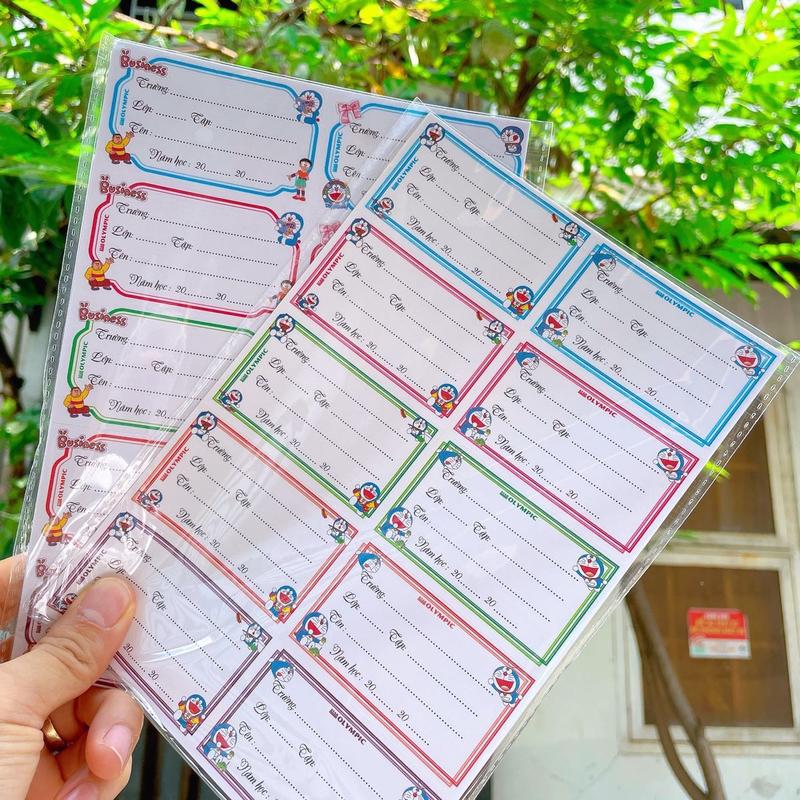 Business
Trường..............................
Lớp:............ Tập:..............
OLYMPIC
Tên:..............................
Năm học : 20........20........
Trường..............................
Lớp:
OLYMPIC
Tên:
Business
Trường..............................
Lớp:............ Tập:..............
OLYMPIC
Tên:..............................
Năm học : 20........20........
Business
Trường..............................
Lớp:............ Tập:..............
OLYMPIC
Tên:..............................
Năm học : 20........
Business
Trường..............................
Lớp:............
OLYMPIC
Tên:
Trường..............................
Lớp:............ Tập:..............
OLYMPIC
Tên:..............................
Năm học: 20........20........
OLYMPIC
Trường..............................
Lớp:............ Tập:..............
Tên:..............................
Năm học: 20........20........
OLYMPIC
Trường..............................
Lớp:............ Tập:..............
Tên:..............................
Năm học: 20........20........
OLYMPIC
Trường..............................
Lớp:............ Tập:..............
Tên:..............................
Năm học: 20........20........
OLYMPIC
Trường..............................
Lớp:............ Tập:..............
Tên:..............................
Năm học: 20........20........
OLYMPIC
Trường..............................
Lớp:............ Tập:..............
Tên:..............................
Năm học: 20........20........
OLYMPIC
Trường..............................
Lớp:............ Tập:..............
Tên:..............................
Năm học: 20........20........
OLYMPIC
Trường..............................
Lớp:............ Tập:..............
Tên:..............................
Năm học: 20........20........
Trường..............................
Tập:..............
20........20........
OLYMPIC
Trường..............................
Lớp:............ Tập:..............
Tên:..............................
Năm học: 20